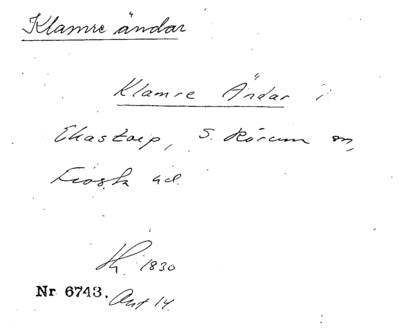 Klamre ändar
Klamre Ändar i
Ekastorp, S. Rörum sn,
Frosta hd.
1830
Nr 6743. Akt 14.